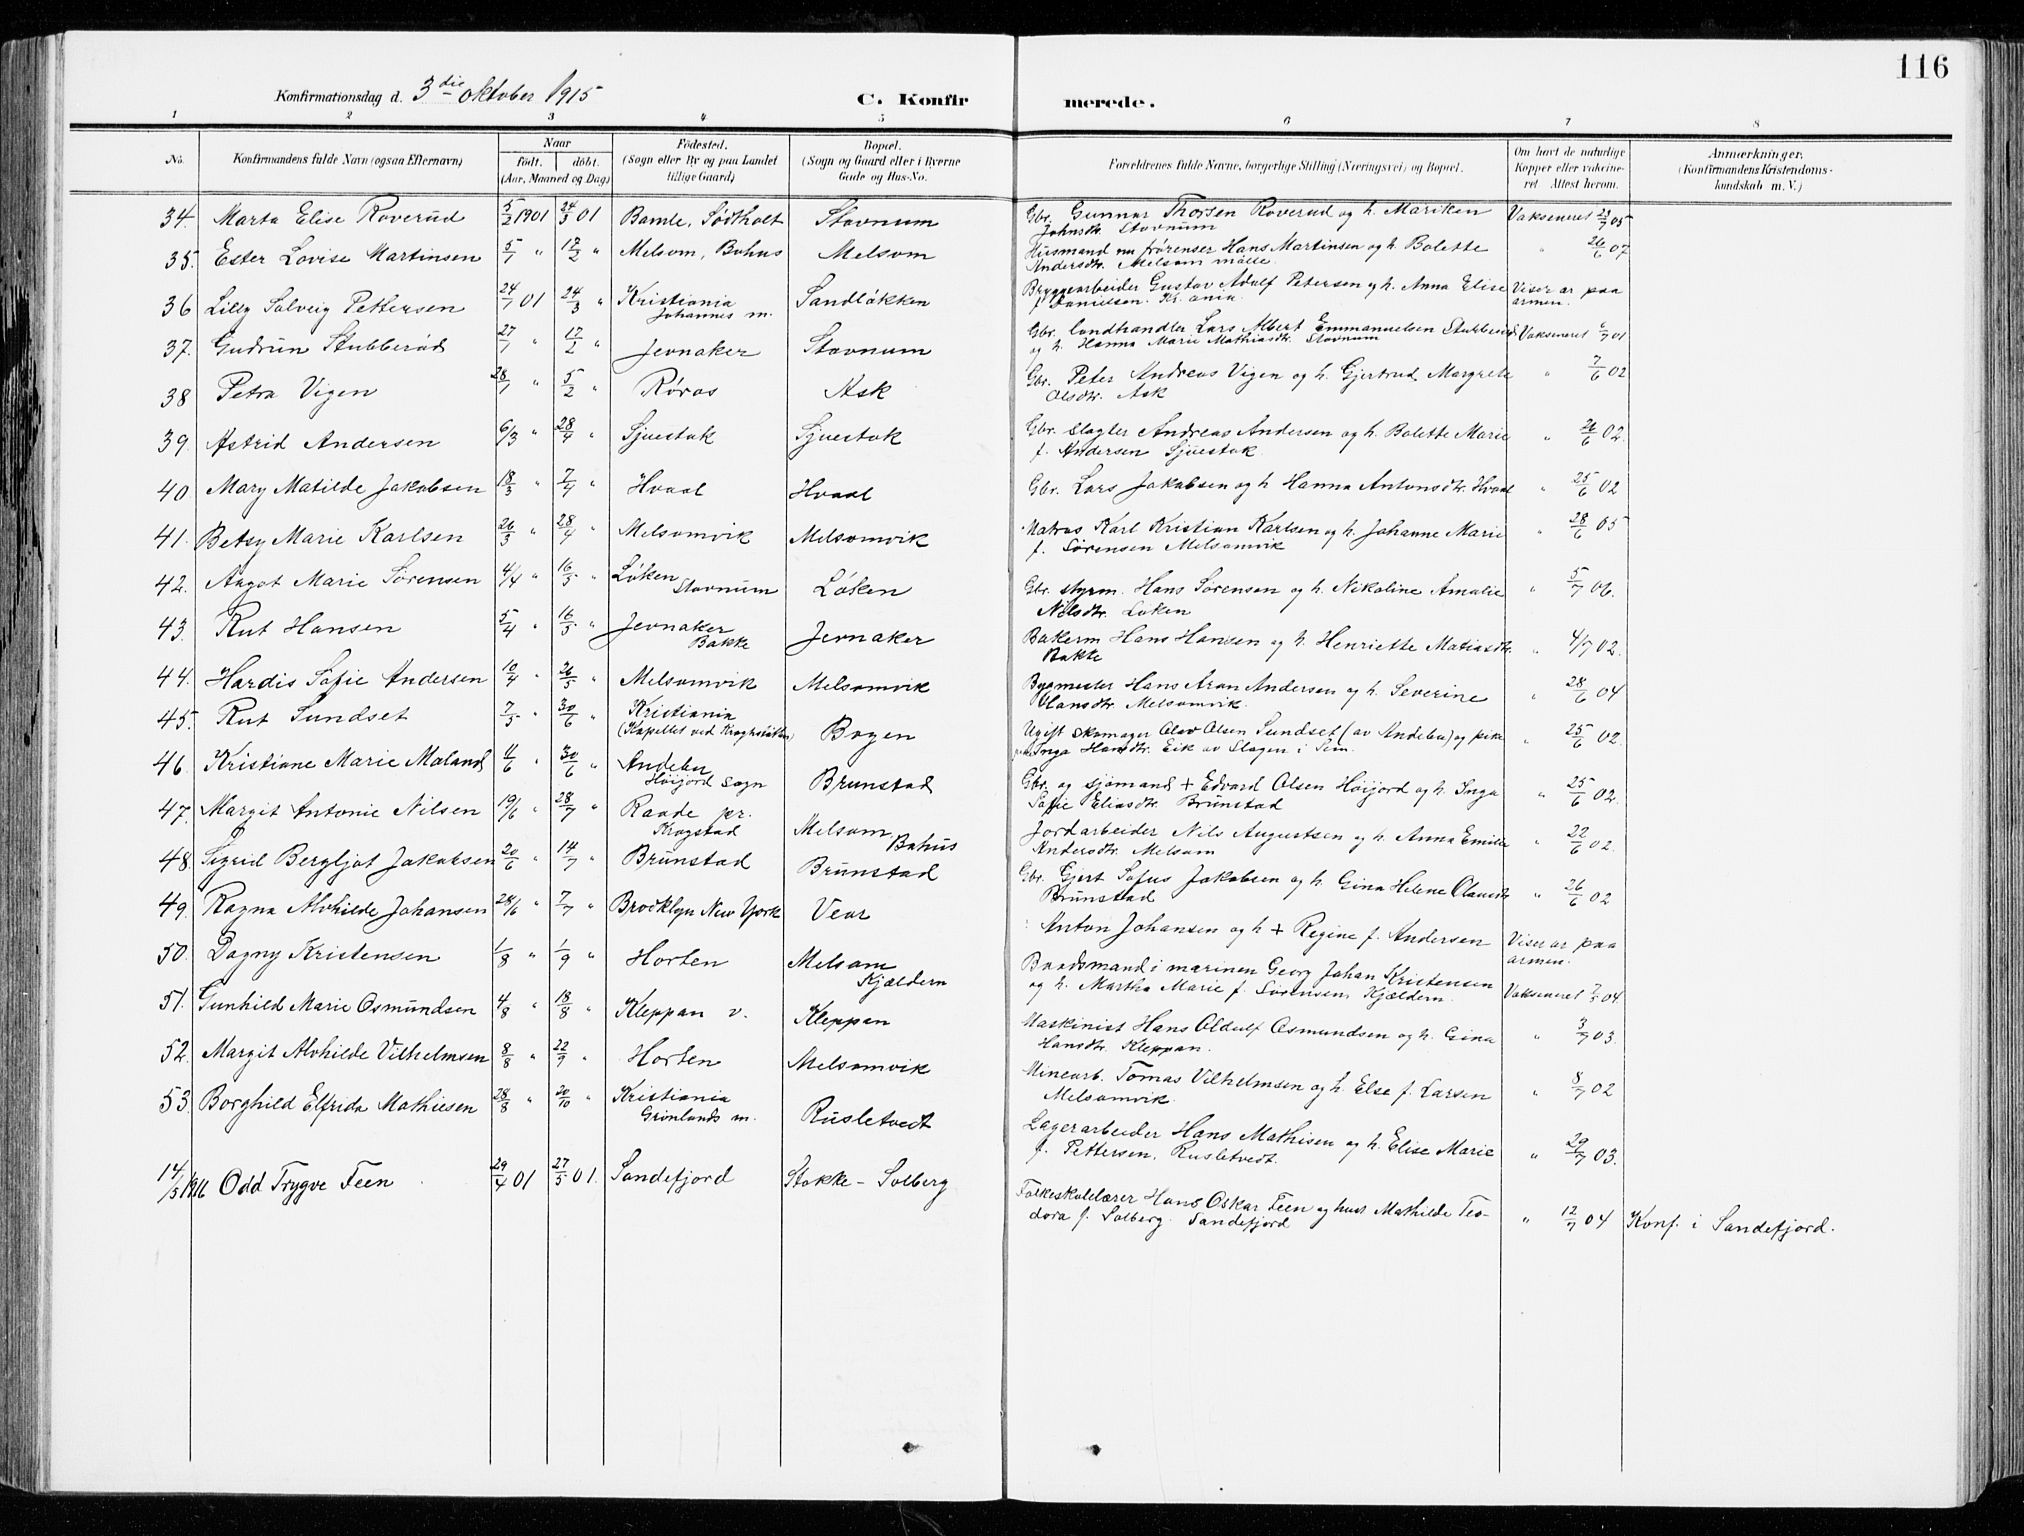 116
Konfirmationsdag d. 3die Oktober 1915
C. Konfirmerede.
1 2 3 4 5 6 7 8
No. Konfirmandens fulde Navn (ogsaa Efternavn) Naar født. døbt. (Aar, Maaned og Dag) Fødested. (Sogn eller By og paa Landet tillige Gaard) Bopæl. (Sogn og Gaard eller i Byerne Gade og Hus-No. Forældrenes fulde Navne, borgerlige Stilling (Næringsvei) og Bopæl. Om havt de naturlige Kopper eller vakcineret Attest herom. Anmærkninger. (Konfirmandens Kristendomskundskab m. V.)
34. Marta Elise Roverud 5/2 1901 24/3 01 Bamle, Sødtholt Stavnum Gbr. Gunnar Thorsen Roverud og h. Mariken Vakseneret 23/9 05
Johnsdtr. Stavnum
35. Ester Lovise Martinsen 5/1 " 17/2 " Melsom, Bahus Melsom Husmand nu førenser Hans Martinsen og h. Bolette " 26/6 07
Andersdtr. Melsom mølle.
36 Lilly Solveig Pettersen 24/1 01 24/3 " Kristiania Johannes m. Sandløkken Bryggearbeider Gustav Adolf Petersen og h. Anna Elise Viser ar paa armen.
f. Danielsen. Kr.ania.
37. Gudrun Stubberød 27/1 " 17/2 " Jevnaker Stavnum Gbr. landhandler Lars Albert Emmanuelsen Stubberød Vakseneret 6/7 01
og h. Hanna Marie Mathiasdtr. Stavnum
38 Petra Vigen 28/1 " 5/2 " Røros Ask Gbr. Peter Andreas Vigen og h. Gjertrud Margrete " 7/6 02
Olsdtr. Ask
39. Astrid Andersen 6/3 " 28/4 " Sjuestok Sjuestok Gbr. slagter Andreas Andersen og h. Bolette Marie " 26/6 02.
f. Andersen Sjuestok.
40 Mary Matilde Jakobsen 18/3 " 7/4 " Hvaal Hvaal Gbr. Lars Jakobsen og h Hanna Antonsdtr. Hvaal " 25/6 02
41. Betsy Marie Karlsen 26/3 " 28/4 " Melsomvik Melsomvik Matros Karl Kristian Karlsen og h. Johanne Marie " 28/6 05
f. Sørensen Melsomvik
42. Aagot Marie Sørensen 4/4 " 16/5 " Løken Stavnum Løken Gbr. styrm. Hans Sørensen og h. Nikoline Amalie " 5/7 06.
Nilsdtr. Løken
43. Rut Hansen 5/4 " 16/5 " Jevnaker Bakke Jevnaker Bakerm Hans Hansen og h. Henriette Matiasdtr. " 4/7 02.
Bakke
44. Hardis Sofie Andersen 10/4 " 26/5 " Melsomvik Melsomvik Bygmester Hans Aron Andersen og h. Severine " 28/6 04
Hansdtr. Melsomvik.
45. Rut Sundset 7/5 " 30/6 " Kristiania (Kapellet ved Kroghstøtten) Bogen Ugift skomager Olav Olsen Sundset (av Andebu) og pike " 25/6 02.
Inga Hansdtr. Eik av Slagen i Sem.
46. Kristiane Marie Moland 4/6 " 30/6 " Andebu Høijord sogn Brunstad Gbr. og sjømand + Edvard Olsen Høijord og h. Inga " 25/6 02.
Sofie Eliasdtr. Brunstad
47. Margit Antonie Nilsen 19/6 " 28/7 " Raade pr. Krogstad Melsom, Bahus Jordarbeider Nils Augustsen og h. Anna Emilie " 22/6 02.
Andersdtr. Melsom
48. Sigrid Bergljot Jakobsen 20/6 " 14/7 " Brunstad Brunstad Gbr. Gjert Sofus Jakobsen og h. Gina Helene Olausdtr. " 26/6 02
Brunstad
49. Ragna Alvhilde Johansen 28/6 " 7/7 " Brooklyn New York Vear Anton Johansen og h + Regine f. Andersen Viser ar paa armen.
50. Dagny Kristensen 1/8 " 1/9 " Horten Melsom Kjældern Baadsmand i marinen Georg Johan Kristensen Vakseneret 7/5 04.
og h. Martha Marie f. Sørensen, Kjældern.
51. Gunhild Marie Osmundsen 4/8 " 18/8 " Kleppan v. Kleppan Maskinist Hans Oldulf Osmundsen og h. Gina " 3/9 03.
Hansdtr. Kleppan.
52. Margit Alvhilde Vilhelmsen 8/8 " 22/9 " Horten Melsomvik Minearb. Tomas Vilhelmsen og h. Else f. Larsen " 8/7 02
Melsomvik.
53. Borghild Elfrida Mathiesen 28/8 " 20/10 " Kristiania Grønlands m. Rusletvedt Lagerarbeider Hans Mathisen og h. Elise Marie " 29/7 03.
f. Pettersen, Rusletvedt.
14/5 1916 Odd Trygve Feen 29/4 01 27/5 01. Sandefjord Stokke - Solberg Folkeskolelærer Hans Oskar Feen og hust Mathilde Teo- " 12/7 04 Konf. i Sandefjord.
dora f. Solberg. Sandefjord